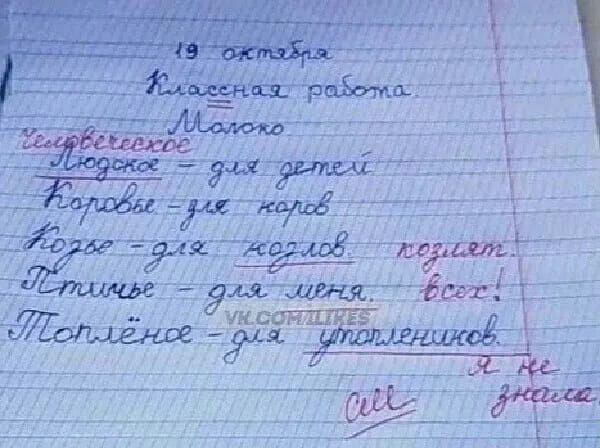 19 октября
Классная работа.
Молоко
Человеческое
Людское - для детей
Коровье - для коров
Козье - для козлов. козлят.
Птичье - для меня. всех!
VK.COM/1LIKES
Топлёное - для утоплеников.
я не
см знала